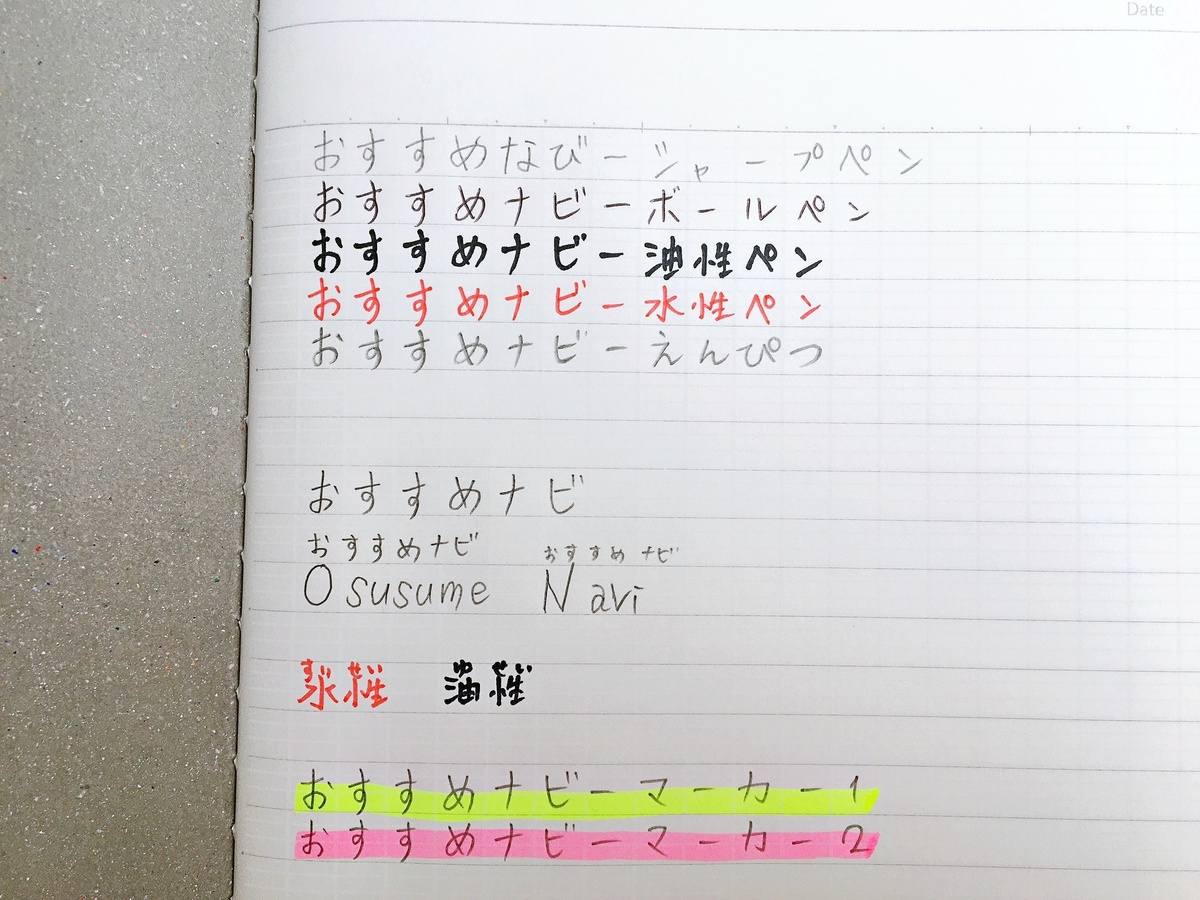 Date
おすすめなびーシャープペン
おすすめナビーボールペン
おすすめナビー油性ペン
おすすめナビー水性ペン
おすすめナビーえんぴつ
おすすめナビ
おすすめナビ おすすめナビ
Osusume Navi
すい せい ゆ せい
水性 油性
おすすめナビーマーカー1
おすすめナビーマーカー2